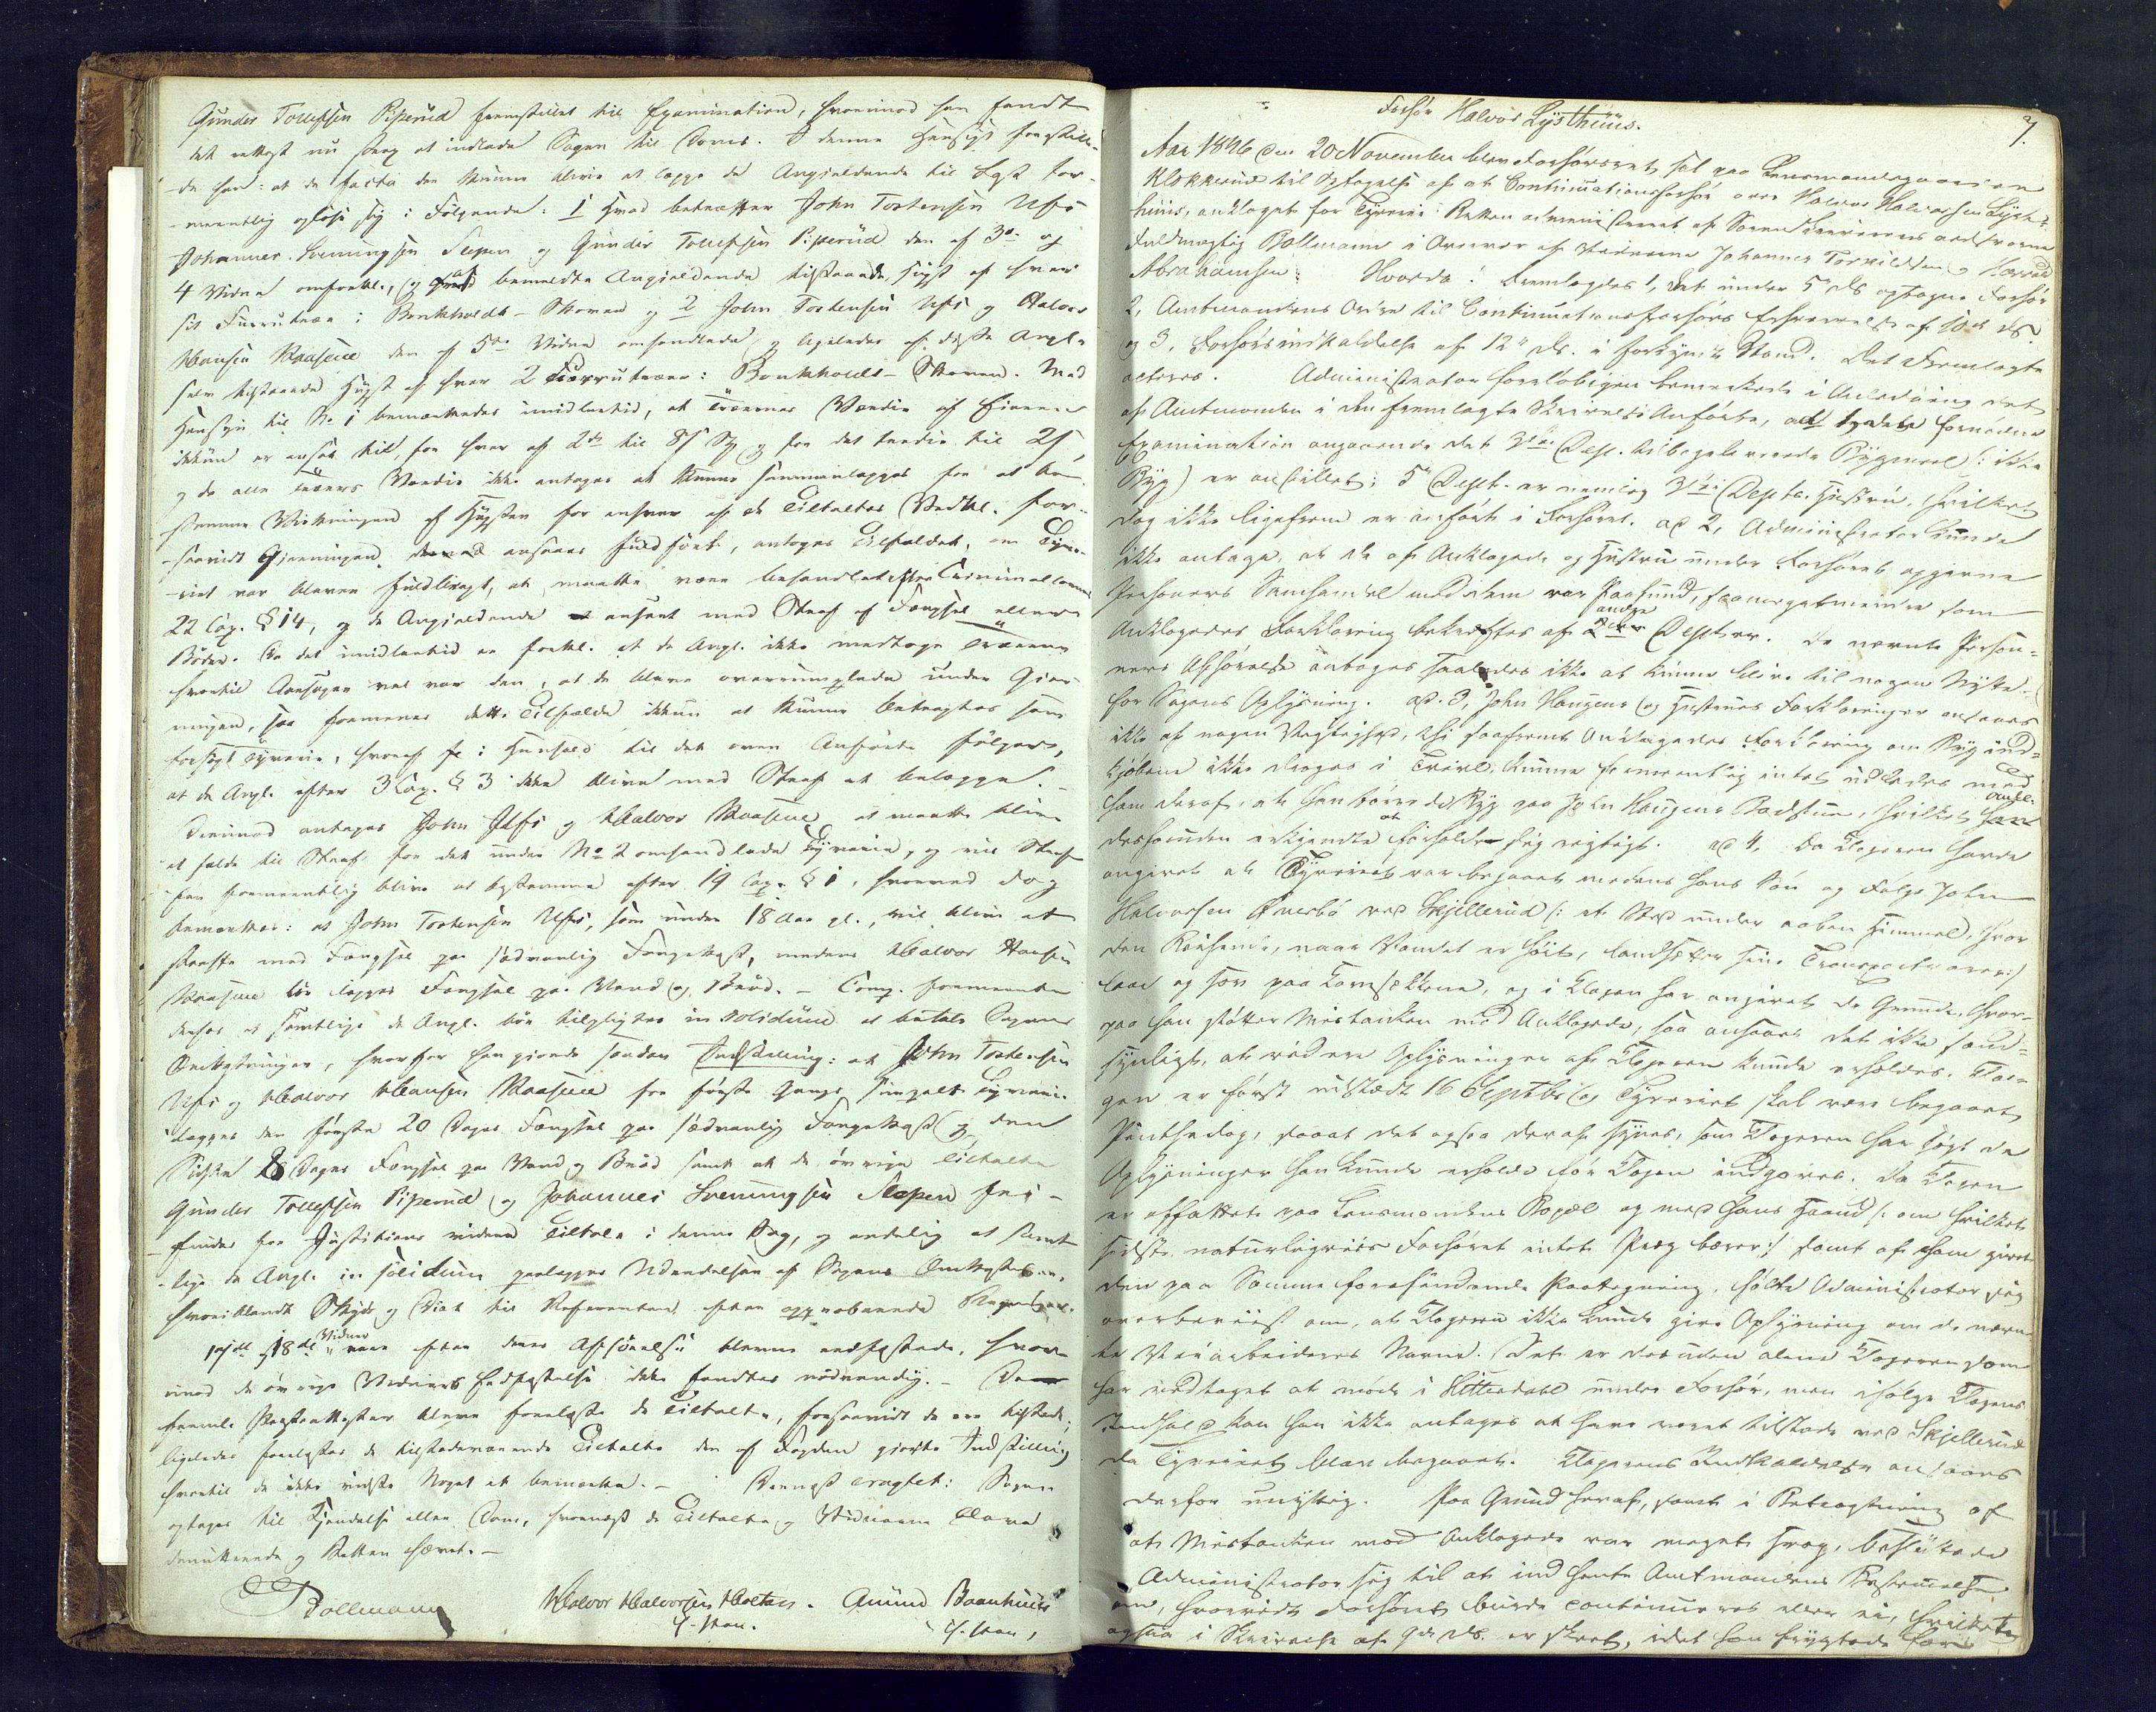 Gunder Tollefsen Piperud fremstillet til Examination, hvorimod han fandt
det rettest nu strax at indlade Sagen til Doms. I denne Hensigt fremstille-
de han: at de facta der kunne blive at lægge de Angjeldende til Last for-
mentlig opløse sig i Følgende: 1 Hvad betræffer John Torstensen Ufs
Johannes Svenungsen Sæpen og Gunder Tollefsen Piperud den af 3die og
4 Vidne omforkl., og af bemeldte Angjeldende tilstaaede Hugst af hver
sit Furrutræe i Bonkholdt-Skoven og 2 John Torstensen Ufs og Halvor
Hansen Maasene den af 5te Vidne omhandlede og ligeledes af disse Angl.
selv tilstaaede Hugst af hver 2 Furrutræer i Bonkholdt-Skoven. Med
Hensyn til No 1 bemærkedes imidlertid, at Træernes Værdie af Eieren
ikkun er ansat til, for hver af 2de til 8 s og for det tredie til 2 s,
og da alle Træers Værdie ikke antages at kunne sammenlægges for at be-
stemme Virkningen af Hugsten for enhver af de Tiltaltes Vedk. for-
saavidt Gjerningen ansees fuldført, antoges Tilfældet, om Tyve-
riet var bleven fuldbragt, at maatte være behandlet efter Criminallovens
22 Cap. § 14, og de Angjeldende anseet med Straf af Fængsel eller
Bøder. Da det imidlertid er forkl. at de Angl. ikke medtoge Træerne
hvortil Aarsagen vel var den, at de bleve overrumplede under Gjer-
ningen, saa formenes dette Tilfælde ikkun at kunne betragtes som
forsøgt Tyverie, hvoraf i Henhold til det oven Anførte følger,
at de Angl. efter 3 Cap. § 3 ikke blive med Straf at belægge. –
Derimod antages John Ufs og Halvor Maasene at maatte blive
at fælde til Straf for det under No 2 omhandlede Tyverie, og vil Straf-
fen formeentlig blive at bestemme efter 19 Cap. § 1, hvorved dog
bemærkes: at John Torstensen Ufs, som under 18 Aar gl., vil blive at
straffe med Fængsel paa sædvanlig Fangekost, medens Halvor Hansen
Maasene bør lægges Fængsel paa Vand og Brød. – Comp. formeente
derhos at samtlige de Angl. bør tilpligtes in solidum at betale Sagens
Omkostninger, hvorfor han gjorde saadan Indstilling: at John Torstensen
Ufs og Halvor Hansen Maasene for første Gangs simpelt Tyverie
ilægges den første 20 Dages Fængsel paa sædvanlig Fangekost og den
Sidste 8 Dages Fængsel paa Vand og Brød samt at de øvrige Tiltalte
Gunder Tollefsen Piperud og Johannes Svenungsen Sæpen fri-
findes for Justitiens videre Tiltale i denne Sag, og endelig at samt-
lige de Angl. in solidum paalægges Udredelsen af Sagens Omkostn.,
hvoriblandt Skyds og Diæt til Referenten efter approberende Regning.
17de og 18de Vidner vare efter deres Afhørelse blevne edfæstede, hvor-
imod de øvrige Vidners Edfæstelse ikke fandtes nødvendig. –
fremle. Præsteattester bleve forelæste de Tiltalte, forsaavidt de ere tilstede;
ligeledes forelæstes de tilstedeværende Tiltalte den af Fogden gjorte Indstilling
hvortil de ikke vidste Noget at bemærke. – Dernæst eragtet: Sagen
optages til Kjendelse eller Dom, hvornæst de Tiltalte og Vidnerne bleve
demitterede og Retten hævet. –
Bollmann Halvor Halvorsen Holtan. Amund Baanhuus
E. Man. E. Man,
7.
Forhør Halvor Lysthuus.
Aar 1846 den 20 November blev Forhørsret sat paa Lensmandsgaarden
Klokkerud til Optagelse af et Continuationsforhør over Halvor Halvorsen Lyst-
huus, anklaget for Tyverie. Retten administreret af Sorenskriverens edsvorne
Fuldmægtig Bollmann i Overvær af Vidnerne Johannes Torvildsen og Havved
Abrahamsen. Hvorda: Fremlagdes 1, det under 5 ds optagne Forhør
2, Amtmandens Ordre til Continuationsforhørs Erhvervelse af 10de ds
og 3, Forhørsindkaldelse af 12 ds. i forkyndt Stand. Det Fremlagte
acteres. Administrator foreløbigen bemærkede i Anledning det
af Amtmanden i den fremlagte Skrivelse Anførte, ad 1, at fornøden
Examination angaaende det 3die Depl. tilbageleverede Bygmeel (: ikke
Byg) er anstillet; 5te Dept. er nemlig 3die Depts. Hustru, hvilket
dog ikke ligefrem er anført i Forhøret. ad 2, Administrator kunde
ikke antage, at de af Anklagede og Hustru under Forhøret opgivne
Personers Samhandel med dem var Paafund, saameget mindre som
Anklagedes Forklaring bekræftes af andre Depter. De nævnte Person-
ners Afhørelse antoges saaledes ikke at kunne blive til nogen Nytte
for Sagens Oplysning. ad. 3, John Haugens og Hustrues Forklaringer ansaaes
ikke af nogen Vigtighed, thi saafremt Anklagedes Forklaring om Byg ind-
kjøbene ikke drages i Tvivl, kunne formeentlig intet udledes med
ham deraf, at han tørrede Byg paa John Haugens Badstue, hvilket
desforuden erkjendte at forholde sig rigtigt. ad 4, Da Klageren havde
angivet at Tyveriet var begaaet medens hans Søn og Følge John
Halvorsen Ønesbø ved Skjellerud (: et Sted under aaben Himmel, hvor
den Reisende, naar Vandet er høit, landsætter sine Transportvarer:)
laae og sov paa Kornsækkene, og i Klagen har angivet de Grunde, hvor-
paa han støtter Mistanken mod Anklagede, saa ansaaes det ikke sand-
synligt, at videre Oplysninger af Klageren kunde erholdes. Kla-
gen er først udstædt 16 Septbr. og Tyveriet skal være begaaet
Pintsedag, saaat det ogsaa deraf synes, som Klageren har søgt de
Oplysninger han kunde erholde før Klagen indgaves. Da Klagen
er affattet paa Lensmandens Bopæl og med hans Haand (: om hvilket
sidste naturligviis Forhøret intet Præg bærer:) samt af ham givet
den paa Samme forefindende Paategning, holdt Administrator sig
overbeviist om, at Klageren ikke kunde give Oplysning om de nævn-
te Veiarbeideres Navne. Det er desuden alene Klageren som
har vedtaget at møde i Hitterdahl under Forhør, men ifølge Klagens
Indhold kan han ikke antages at have været tilstede ved Skjellerud
da Tyveriet blev begaaet. Klagerens Indkaldelse ansaaes
derfor unyttig. Paa Grund heraf, samt i Betragtning af
at Mistanken mod Anklagede var meget svag, besluttede
Administrator sig til at indhente Amtmandens Bestemmelse
om, hvorvidt Forhøret burde continueres eller ei, hvilket
ogsaa i Skrivelse af 9de ds. er skeet, idet han frygtede for